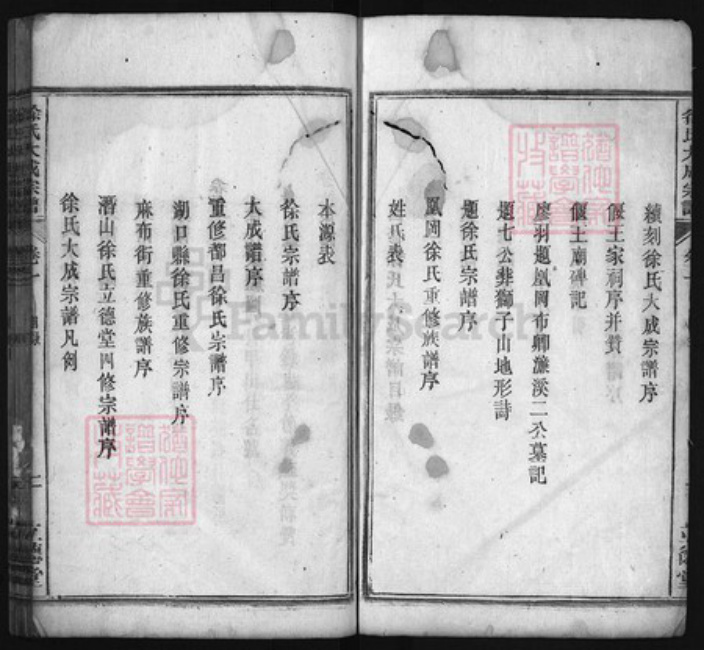 續刻徐氏大成宗譜序
偃王家祠序并贊
偃王廟碑記
廖羽題凰岡布卿濂溪二公墓記
題七公葬獅子山地形詩
題徐氏宗譜序
凰岡徐氏重修族譜序
姓氏表
本源表
徐氏宗譜序
大成譜序
重修都昌徐氏宗譜序
湖口縣徐氏重修宗譜序
麻布街重修族譜序
潛山徐氏立德堂四修宗譜序
徐氏大成宗譜凡例
徐氏大成宗譜
立德堂
FamilySearch